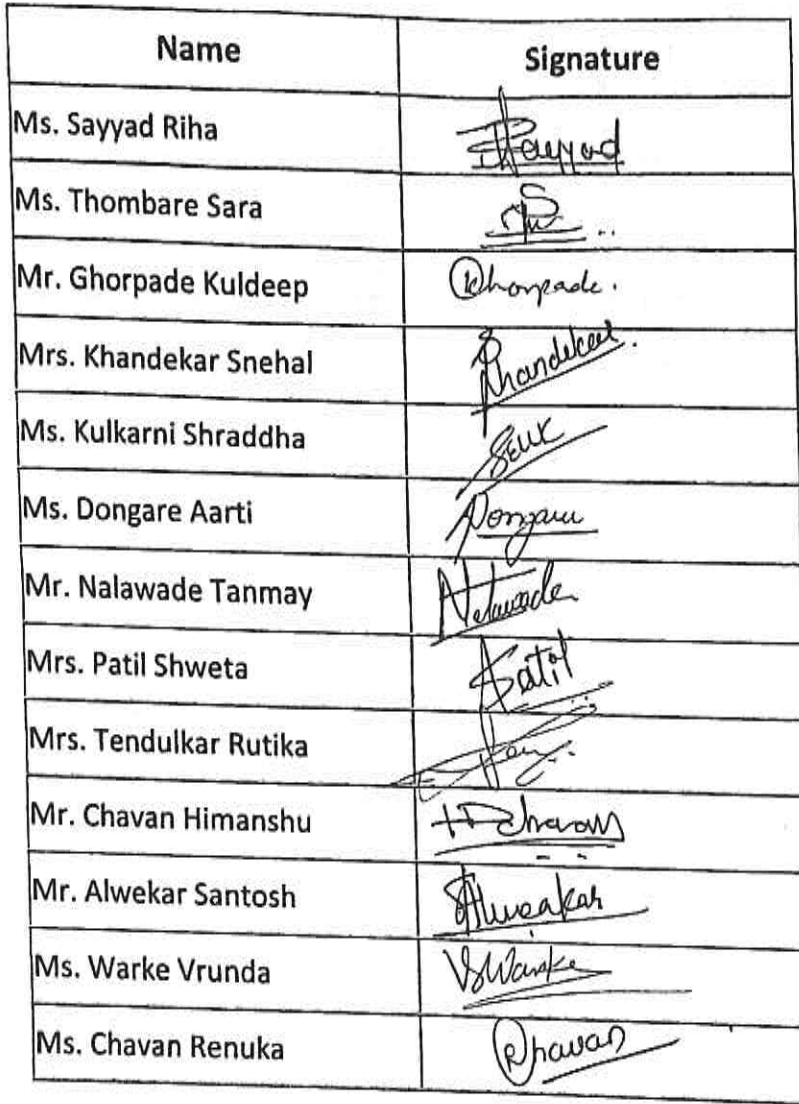 Name Signature
Ms. Sayyad Riha Sayyad
Ms. Thombare Sara
Mr. Ghorpade Kuldeep Ghorpade.
Mrs. Khandekar Snehal Khandekar.
Ms. Kulkarni Shraddha
Ms. Dongare Aarti Dongare
Mr. Nalawade Tanmay Nalawade
Mrs. Patil Shweta Patil
Mrs. Tendulkar Rutika
Mr. Chavan Himanshu Chavan
Mr. Alwekar Santosh Alwekar
Ms. Warke Vrunda VSWarke
Ms. Chavan Renuka Chavan